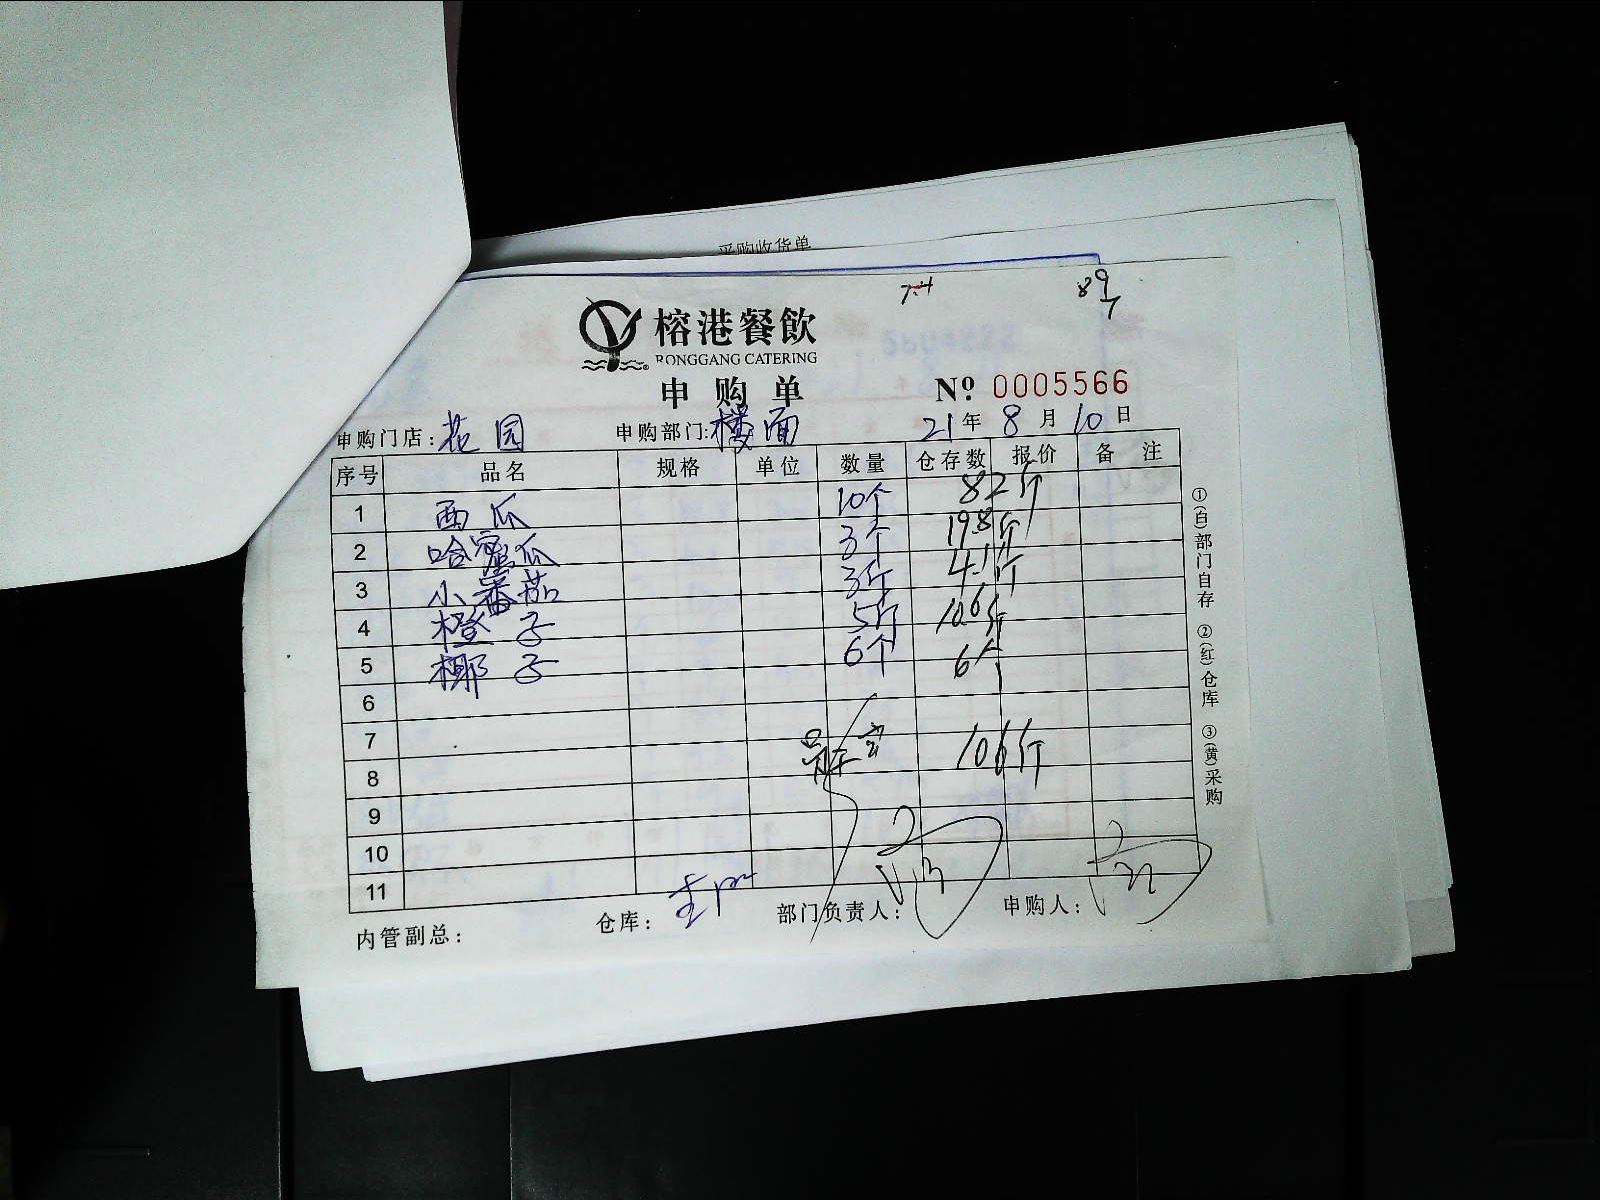 采购收货单
7.4
89
7
榕港餐飲
RONGGANG CATERING
申购单
Nº 0005566
申购门店：花园 申购部门：楼面 21年8月10日
序号 品名 规格 单位 数量 仓存数 报价 备注
1 西瓜 10个 82斤
2 哈密瓜 3个 19.8斤
3 小番茄 3斤 4.1斤
4 橙子 5斤 10.6斤
5 椰子 6个 6个
6
7
8 106斤
9
10
11
内管副总： 仓库： 部门负责人： 申购人：
①(白)部门自存 ②(红)仓库 ③(黄)采购